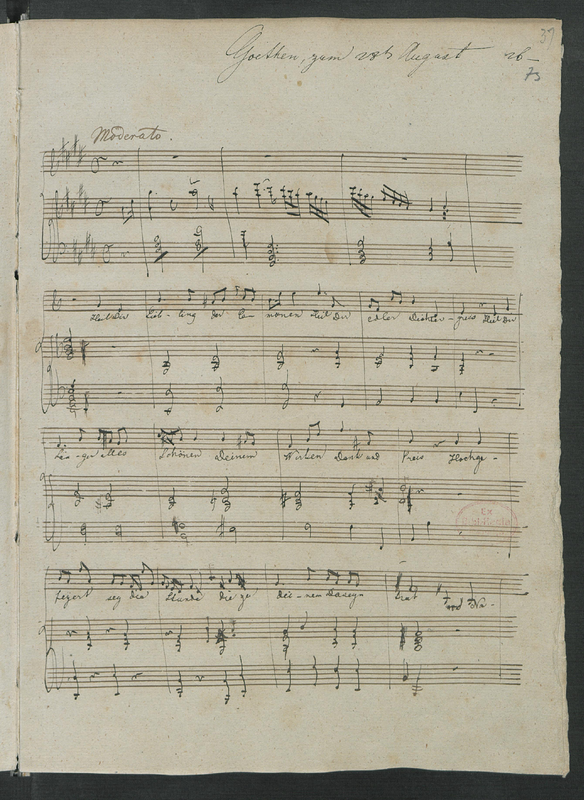 37
Goethen, zum 28t August 26-
73
Moderato.
Heil Dir Lieb-ling der Ca-mönen Heil Dir edler Dichter-greis Heil Dir
Sän-ger alles Schönen Deinem Wirken Dank und Preis Hochge-
feyert sey die Stunde die zu Dei-nem Daseyn trat und Na-
Ex